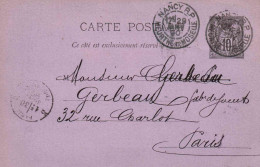 CARTE POSTALE
Ce côté est exclusivement réservé à
NANCY R.P.
10
Monsieur Gerbeau
Gerbeau
32 rue Charlot
Paris